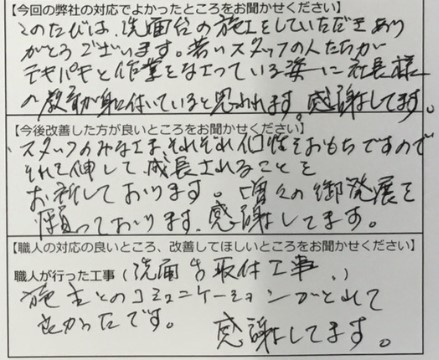 【今回の弊社の対応でよかったところをお聞かせください】
このたびは、洗面台の施工をしていただきあり
がとうございます。若いスタッフの人たちが
テキパキと作業をなさっている姿に社長様
の教育が身に付いていると思われます。感謝してます。
【今後改善した方が良いところをお聞かせください】
スタッフのみなさま、それぞれ個性をおもちですので
それを伸して、成長されることを
お祈しております。増々の御発展を
願っております。感謝してます。
【職人の対応の良いところ、改善してほしいところをお聞かせください】
職人が行った工事（洗面台取付工事、）
施主とのコミュニケーションがとれて
良かったです。
感謝してます。